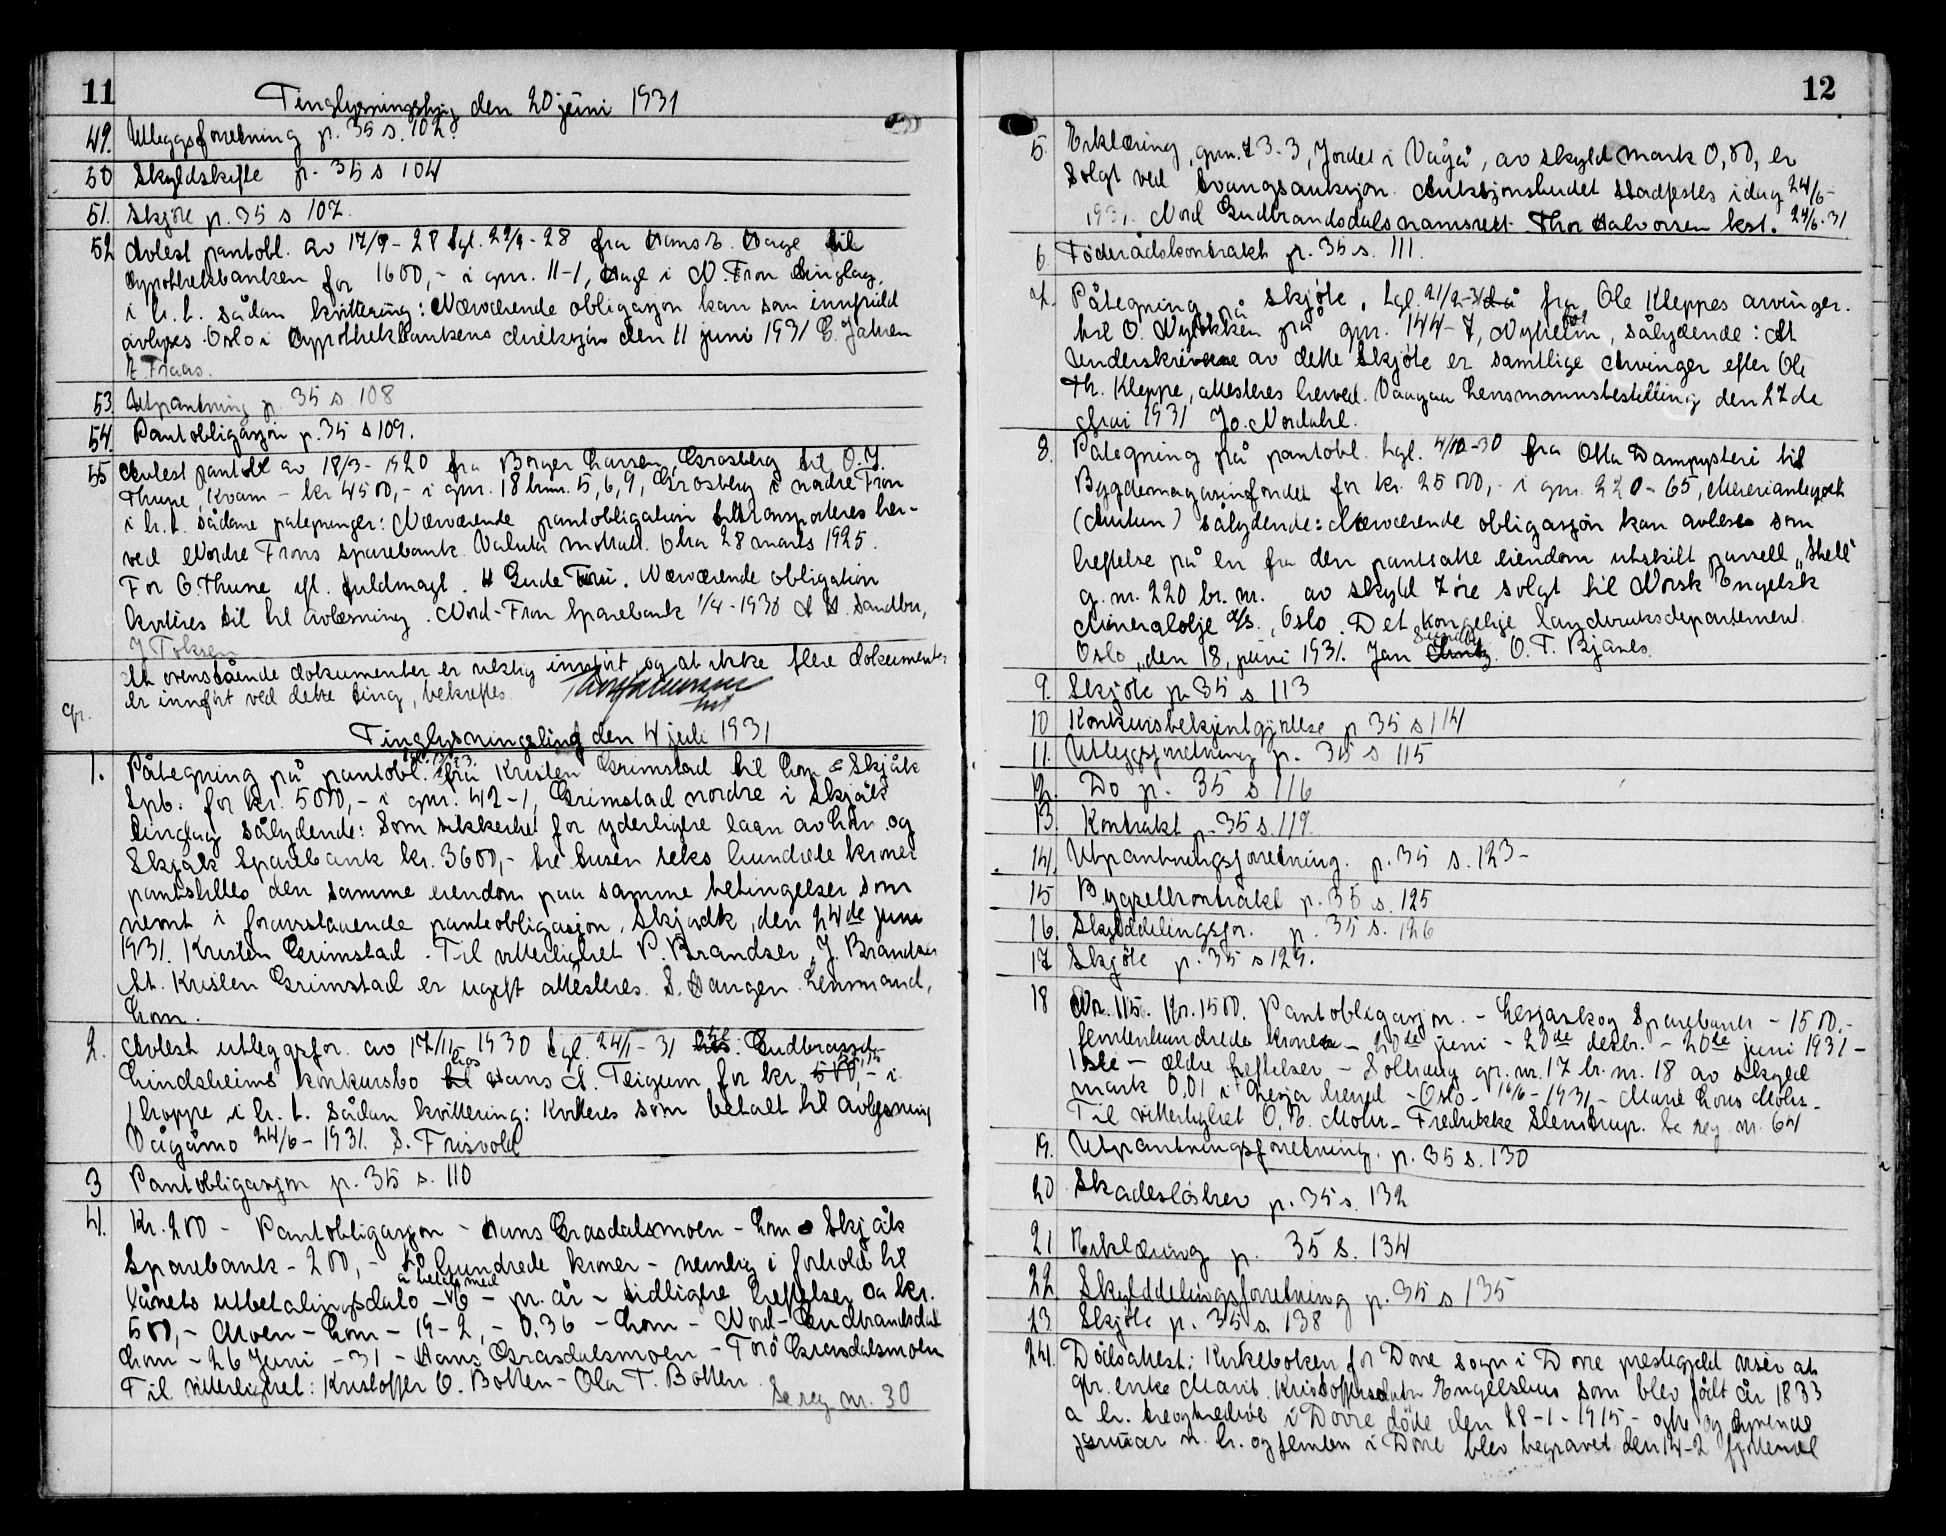 11
Tinglysningsting den 20 juni 1931
49. Utleggsforretning p. 35 s. 102.
50 Skyldskifte p. 35 s 104
51. Skjöte p. 35 s 107.
52 Avlest pantobl. av 17/9-28 tgl. 22/9-28 fra Hans E. Hage til
Hypothekbanken for 1600,- i gnr. 11-1, Hage i N. Fron tinglag,
i h. t. sådan kvittering: Nærværende obligasjon kan som innfridd
avlyses. Oslo i Hypothekbankens direksjon den 11 juni 1931 E. Jahren
53. Utpantning p. 35 s 108
54. Pantobligasjon p. 35 s 109.
55 Avlest pantobl av 18/3-1920 fra Borger Larsen, Grosberg til O. J.
Thune, Kvam - kr 4500,- i gnr. 18 bnr. 5, 6, 9, Grosberg i nordre Fron
i h. t. sådane pategninger: Nærværende pantobligation transporteres her-
ved Nordre Frons sparebank. Valuta mottatt. Otta 28 marts 1925.
For O. Thune efl. fuldmagt. Nærværende obligation
kviteres til avlesning. Nord-Fron Sparebank 1/4-1930 Sandbu,
At ovenstående dokumenter er riktig innført og at ikke flere dokumenter
er innført ved dette ting, bekreftes.
Tinglysningsting den 4 juli 1931
1. Påtegning på pantobl. fra Kristen Grimstad til Lom & Skjåk
Spb. for kr. 5000,- i gnr. 42-1, Grimstad nordre i Skjåk
tinglag sålydende: Som sikkerhet for yderligere laan av Lom og
Skjåk Sparebank kr. 3600,- tre tusen seks hundrede kroner
pantstilles den samme eiendom paa samme betingelser som
nevnt i foranstaaende panteobligasjon. Skjaak, den 24de juni
1931. Kristen Grimstad. Til vitterlighet P. Brandser J. Brandser
At. Kristen Grimstad er ugift attesteres. S. Haugen Lensmand,
Lom.
2. Avlest utleggsfor. av 17/11-1930 tgl. 24/1-31 Gudbrand
Lindsheims konkursbo hos Hans A. Teigum for kr. i
1 hoppe i h. t. sådan kvittering: Kviteres som betalt til avlysning
Vågåmo 24/6-1931. S. Frisvold
3 Pantobligasjon p. 35 s. 110
4. Kr. 200 - Pantobligasjon - Hans Grasdalsmoen - Lom & Skjåk
Sparebank - 200,- to hundrede kroner - nemlig i forhold til
å betale med
lånets utbetalingsdato - 1/6 - pr. år - tidligere heftelser på kr.
500,- Moen - Lom - 19-2, - 0.36 - Lom - Nord-Gudbrandsdal
Lom - 26 Juni - 31 - Hans Grasdalsmoen - Torö Grasdalsmoen
Til vitterlighet: Kristoffer O. Botten - Ola T. Botten.
Se reg nr. 30
12
5. Erklæring, gnr. 73-3, Jordet i Vågå, av skyld mark 0,80, er
solgt ved tvangsauksjon. Auksjonsbudet stadfestes idag 24/6-
1931. Nord Gudbrandsdals namsrett Thor Halvorsen kst. 24/6-31
6. Föderådskontrakt p. 35 s. 111.
7. Påtegning på skjöte, tgl. 21/2-31 fra Ole Kleppes arvinger.
til O. Nyløkken på gnr. 144-7, Nyheim, sålydende: At
underskriverne av dette skjöte er samtlige arvinger efter Ole
Th. Kleppe, attesteres herved. Vaagaa Lensmannsbestilling den 27de
mai 1931 Jo. Nordahl.
8. Påtegning på pantobl. tgl. 4/10-30 fra Otta Dampysteri til
Bygdemagasinfondet for kr. 25000,- i gnr. 220-65, Meierianlegget
sålydende: Nærværende obligasjon kan avleses som
heftelse på en fra den pantsatte eiendom utskilt parsell „Shell"
g. nr. 220 br. nr. av skyld 7 öre solgt til Norsk Engelsk
Mineralolje A/S., Oslo. Det kongelige landbruksdepartement.
Oslo, den 18, juni 1931. Jan O. T. Bjanes.
9. Skjöte p. 35 s 113
10 Konkursbekjentgjörelse p 35 s 114
11. Utleggsforretning p. 35 s 115
12. Do p. 35 s 116
13. Kontrakt p. 35 s. 119
14. Utpantningsforretning. p. 35 s. 123-
15 Bygsellkontrakt p. 35 s. 125
16. Skylddelingsfor. p. 35 s. 126
17 Skjöte p. 35 s 129.
18 Nr. 115. Kr. 1500. Pantobligasjon. - Lesjaskog Sparebank - 1500.-
femtenhundrede kroner - 20de juni - 20de desbr. - 20de juni 1931 -
1ste - ældre heftelser - Solhaug gr. nr. 17 br. nr. 18 av skyld
mark 0.01 i Lesja herred - Oslo - 16/6-1931 - Marie Mohr -
Til vitterlighet O. B. Mohr - Fredrikke Stenstrup. Se reg nr. 64
19. Utpantningsforretning. p. 35 s. 130
20 Skadeslösbrev p. 35 s. 132
21 Erklæring p. 35 s. 134
22 Skylddelingsforretning p. 35 s 135
23 Skjöte p. 35 s. 138
24. Döðsattest: Kirkeboken for Dovre sogn i Dovre prestegjeld viser at
gbr. enke Marit Kristoffersdatter Engelshus som blev født år 1833
a tt. treogtredive i Dovre döde den 28-1-1915 - otte og tyvende
januar n. h. og femten i Dovre blev begravet den 14-2 fjortende